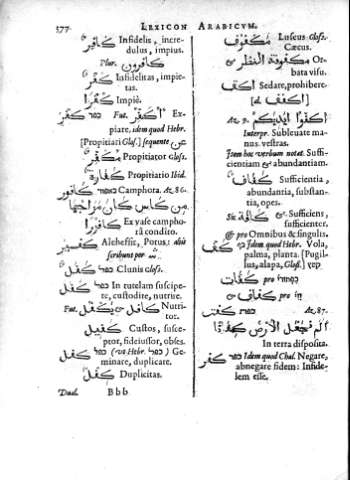 377 LEXICON ARABICVM.
كَافِرٌ Infidelis, incre-
dulus, impius.
Plur. كَافِرُونَ
كُفْرٌ Infidelitas, impie-
tas.
كُفْرًا Impiè.
כפר كفر Fut. Ex-
piare, idem quod Hebr.
[Propitiari Gloss.] sequente عن
Propitiator Gloss.
كفارة Propitiatio Ibid.
كافور כפר Camphora. Az. 86.
من كاس كان مزاجها
كافورا Ex vase campho-
râ condito.
Alcheffir, Potus: alii
scribunt per
كفل Clunis Gloss.
In tutelam suscipe-
re, custodire, nutrire.
Fut. يكفل كافل Nutri-
tor.
كفيل Custos, susce-
ptor, fideiussor, obses.
كفل כפל (vt Hebr. כפל) Ge-
minare, duplicare.
كفل Duplicitas.
Dual. Bbb
مكفوف Luscus Gloss.
Cæcus.
مكفوفة النظر Or-
bata visu.
اكفف Sedare, prohibere.
[al. اكفف]
Az. اكفوا ايديكم
Interpr. Subleuate ma-
nus vestras.
Item hoc verbum notat. Suffi-
cientiam & abundantiam.
كفاف Sufficientia,
abundantia, substan-
tia, opes.
Sic كافة &. Sufficiens,
sufficienter.
& pro Omnibus & singulis.
كف כף Idem quod Hebr. Vola,
palma, planta. [Pugil-
lus, alapa, Gloss.]
pro كفات
pro in
Az. 87.
الم نجعل الارض كفاتا
In terra disposita.
كفر כפר Idem quod Chal. Negare,
abnegare fidem: Infide-
lem esse.